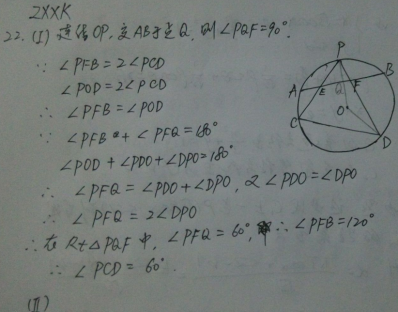 ZXXK
22. (I) 连结OP, 交AB于点Q, 则∠PQF=90°.
∵ ∠PFB=2∠PCD
∠POD=2∠PCD
∴ ∠PFB=∠POD
∵ ∠PFB+∠PFQ=180°
∠POD+∠PDO+∠DPO=180°
∴ ∠PFQ=∠PDO+∠DPO, 又∠PDO=∠DPO
∴ ∠PFQ=2∠DPO
∴在Rt△PQF中, ∠PFQ=60°, ∴∠PFB=120°
∴ ∠PCD=60°.
(II)
P
B
A
E
Q
F
O
C
D